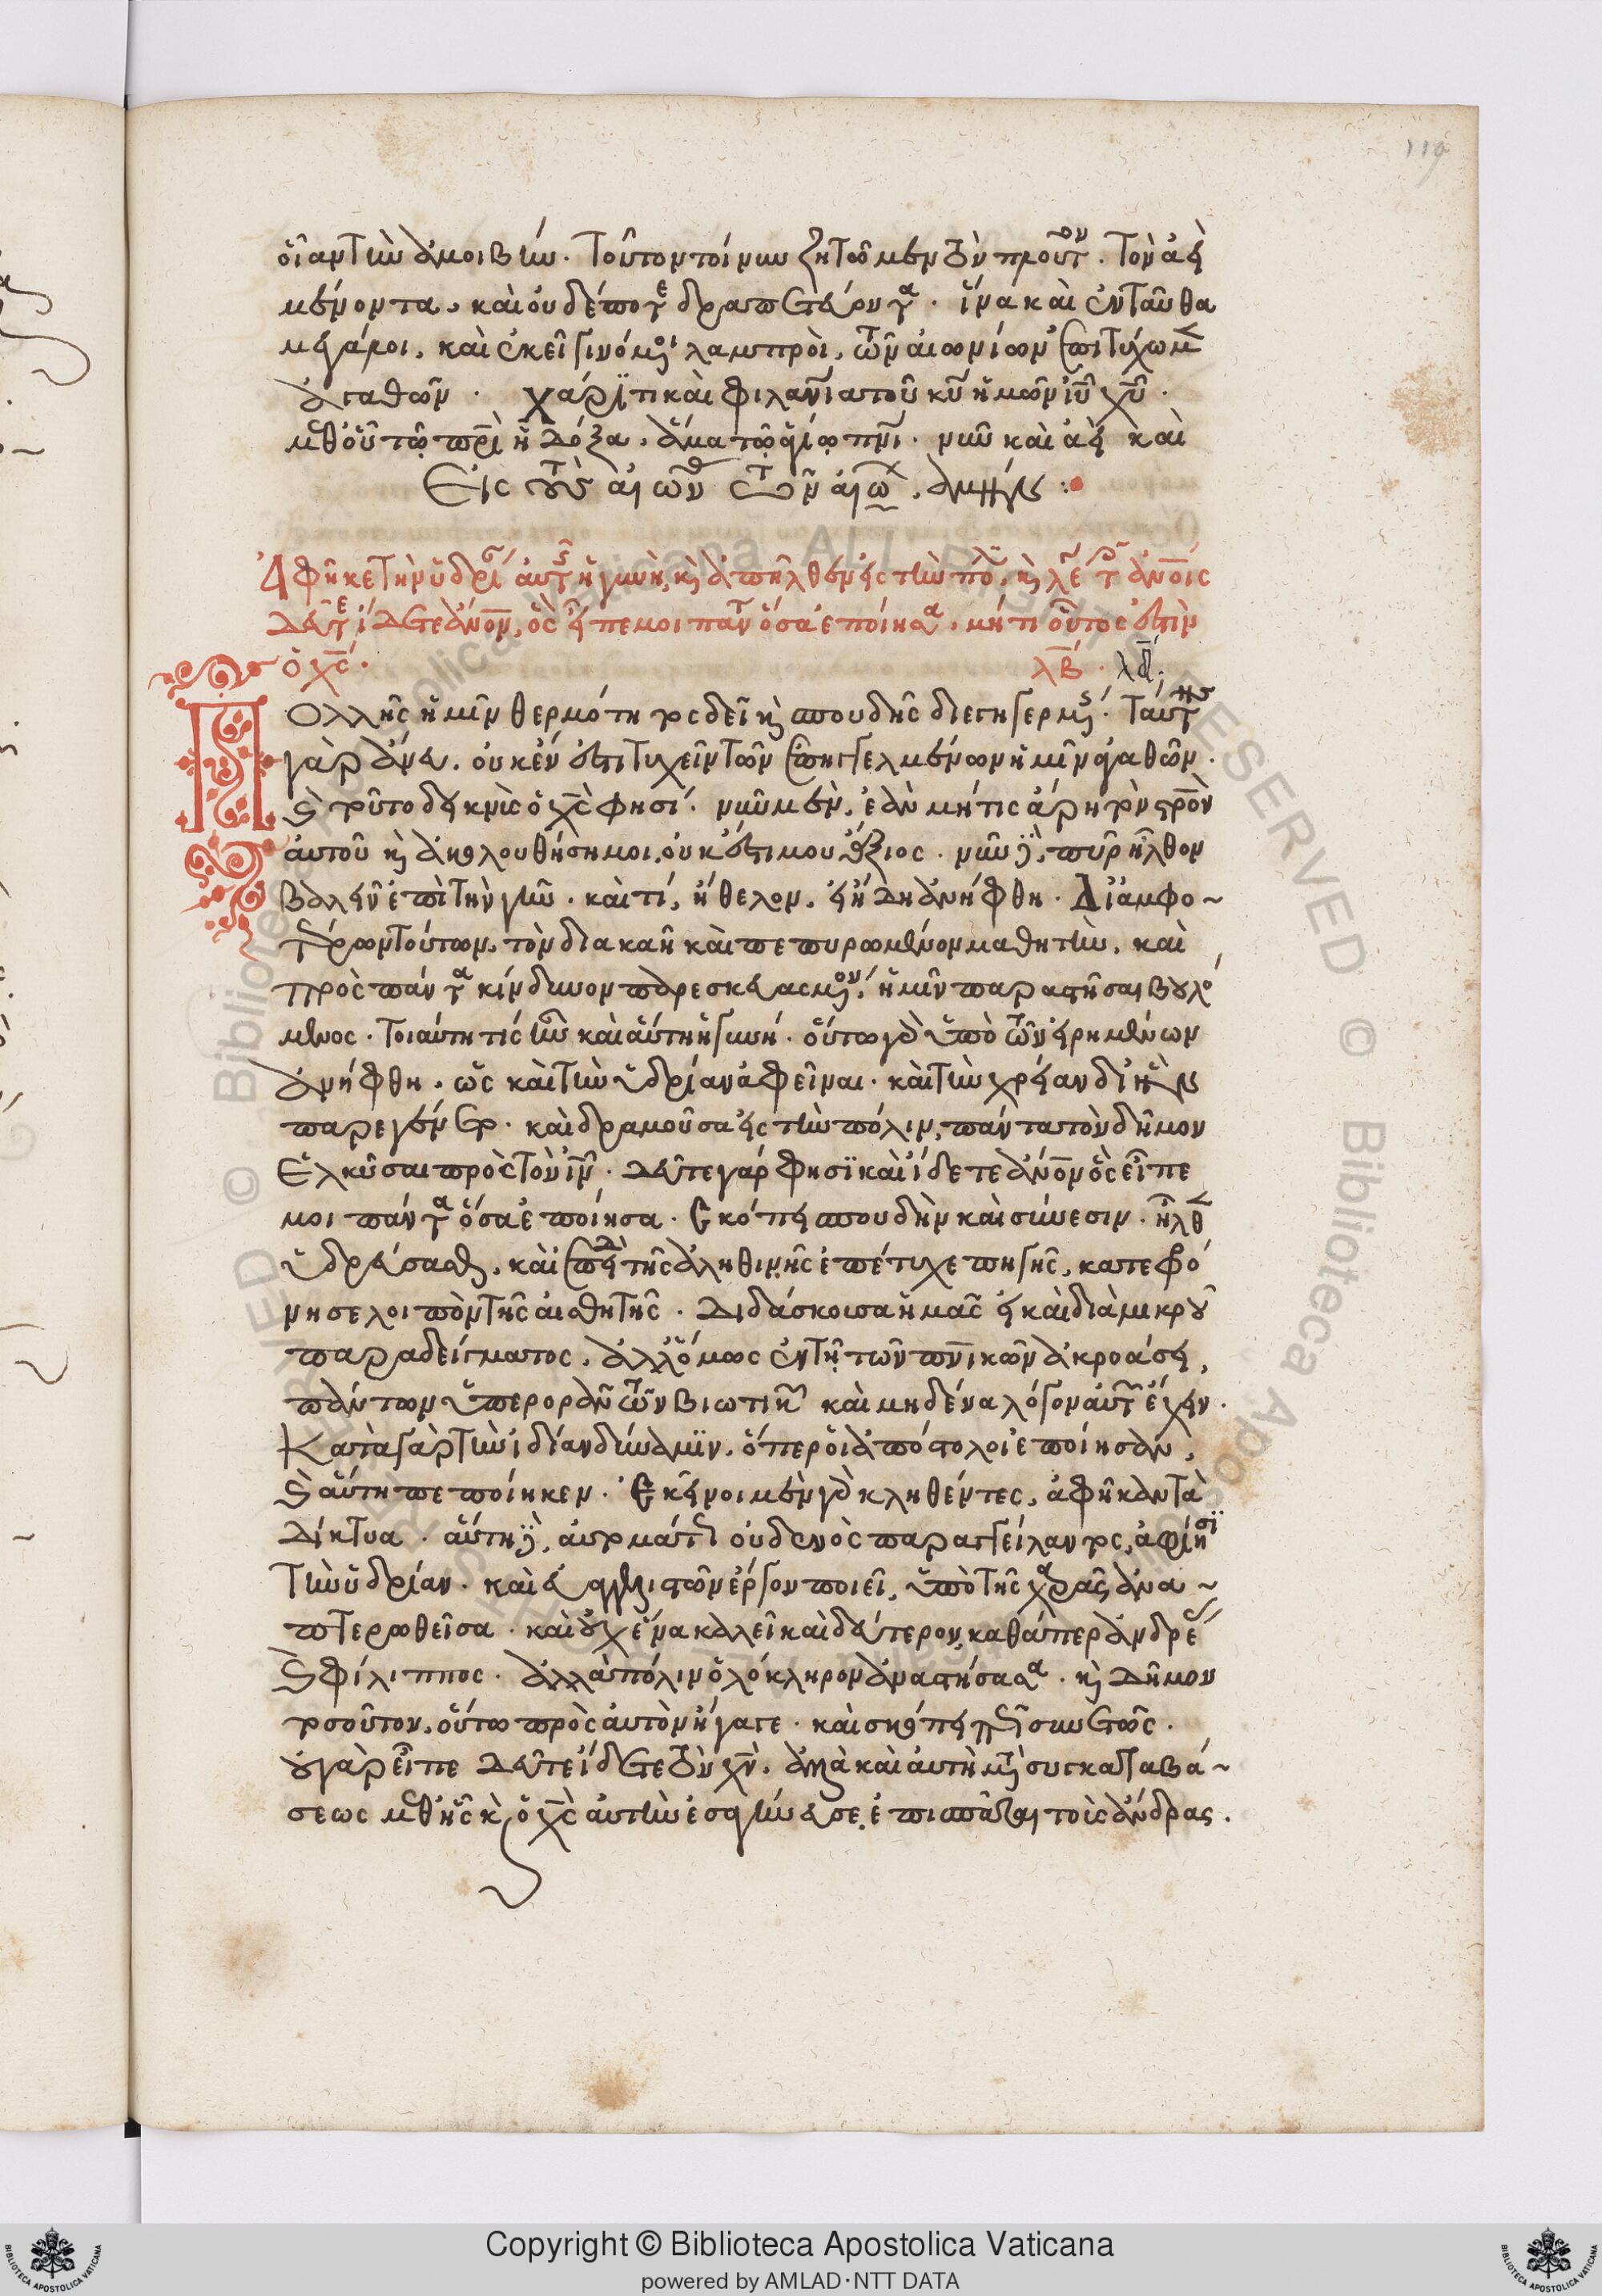 119
οἴαν τὴν ἀμοιβήν. Τοῦτον τοίνυν ζητῶμεν τὸν πλοῦτον. Τὸν ἀεὶ
μένοντα, καὶ οὐδέποτε δραπετεύοντα. ἵνα καὶ ἐνταῦθα
μεγάλοι, καὶ ἐκεῖ γινόμενοι λαμπροὶ, τῶν αἰωνίων ἐπιτύχωμεν
ἀγαθῶν. χάριτι καὶ φιλανίᾳ τοῦ κυ ἡμῶν ιυ χυ.
μεθ' οὗ τῷ πρὶ ἡ δόξα, ἅμα τῷ ἁγίῳ πνι. νῦν καὶ ἀεὶ καὶ
Εἰς τοὺς αἰῶνας τῶν αἰώ, ἀμήν:
Ἀφῆκε τὴν ὑδρίαν αὐτῆς ἡ γυνὴ, καὶ ἀπῆλθεν εἰς τὴν πόλιν, καὶ λέγει τοῖς ἀνοις
Δεῦτε ἴδετε ἄνον, ὃς εἶπε μοι πάντα ὅσα ἐποίησα. μήτι οὗτος ἐστὶν
ὁ χς. λβ. λδ.
Πολλῆς ἡμῖν θερμότητος δεῖ καὶ σπουδῆς διεγηγερμένης. Ταύτης
γὰρ ἄνευ, οὐκ ἔνι ἐπιτυχεῖν τῶν ἐπηγγελμένων ἡμῖν ἀγαθῶν.
καὶ τοῦτο δεικνὺς ὁ χς φησί. νῦν μὲν, ἐὰν μή τις ἄρῃ τὸν στρον
αὐτοῦ καὶ ἀκολουθήσῃ μοι, οὐκ ἔστι μου ἄξιος. νῦν δὲ, πῦρ ἦλθον
βαλεῖν ἐπὶ τὴν γῆν. καὶ τί, ἤθελον, εἰ ἤδη ἀνήφθη. Δι' ἀμφο~
τέρων τούτων, τὸν διακαῆ καὶ πεπυρωμένον μαθητὴν, καὶ
πρὸς πάντα κίνδυνον παρεσκευασμένον, ἡμῖν παραστῆσαι βουλό
μενος. Τοιαύτη τίς ἦν καὶ αὕτη ἡ γυνή. οὕτω γὰρ ὑπὸ τῶν εἰρημένων
ἀνήφθη, ὡς καὶ τὴν ὑδρίαν ἀφεῖναι. καὶ τὴν χρείαν δι' ἣν
παρεγένετο. καὶ δραμοῦσα εἰς τὴν πόλιν, πάντα τὸν δῆμον
Ἑλκῦσαι πρὸς τὸν ιν. Δεῦτε γάρ φησϊ καὶ ἴδετε ἄνον ὃς εἶπε
μοι πάντα ὅσα ἐποίησα. Σκόπει σπουδὴν καὶ σύνεσιν. ἦλθεν
ὑδρεύσασθαι, καὶ ἐπειδὴ τῆς ἀληθινῆς ἐπέτυχε πηγῆς, κατεφρό
νησε λοιπὸν τῆς αἰσθητῆς. Διδάσκουσα ἡμᾶς εἰ καὶ διὰ μικροῦ
παραδείγματος, ἀλλ' ὅμως ἐν τῇ τῶν πνικῶν ἀκροάσει,
πάντων ὑπερορᾶν τῶν βιωτικῶν καὶ μηδένα λόγον αὐτῶν ἔχειν.
Κατὰ γὰρ τὴν ἰδίαν δύναμϊν, ὅπερ οἱ ἀπόστολοι ἐποίησαν,
καὶ αὕτη πεποίηκεν. Ἐκεῖνοι μὲν γὰρ κληθέντες, ἀφῆκαν τὰ
Δίκτυα. αὕτη δὲ, αὐτομάτη οὐδενὸς παραγγείλαντος, ἀφίησϊ
Τὴν ὑδρίαν. καὶ εὐαγγελιστῶν ἔργον ποιεῖ, ὑπὸ τῆς χαρᾶς ἀνα~
πτερωθεῖσα. καὶ οὐχ ἕνα καλεῖ καὶ δεύτερον, καθάπερ ἀνδρέας
καὶ φίλιππος. ἀλλὰ πόλιν ὁλόκληρον ἀναστήσασα. καὶ Δῆμον
τοσοῦτον, οὕτω πρὸς αὐτὸν ἤγαγε. καὶ σκόπει πῶς συνετῶς.
οὐ γὰρ εἶπε Δεῦτε ἴδετε τὸν χν, ἀλλὰ καὶ αὐτὴ μετὰ συγκαταβά~
σεως μεθ' ἧς καὶ ὁ χς αὐτὴν ἐσαγήνευσε, ἐπισπᾶται τοὺς ἄνδρας.
Copyright © Biblioteca Apostolica Vaticana
powered by AMLAD·NTT DATA